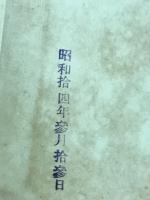 昭和拾四年參月拾參日